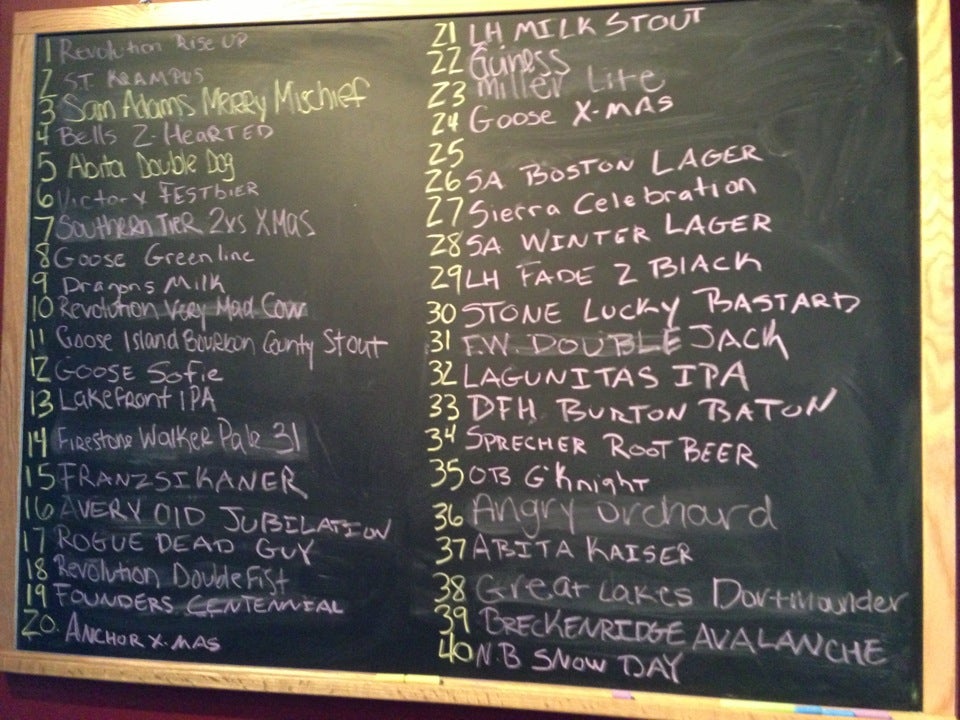 1 Revolution Rise UP
2 ST. KRAMPUS
3 Sam Adams Merry Mischief
4 Bells 2-HEARTED
5 Abita Double Dog
6 Victory FESTBIER
7 Southern Tier 2xs XMAS
8 Goose Greenline
9 Dragons Milk
10 Revolution Very Mad Cow
11 Goose Island Bourbon County Stout
12 GOOSE Sofie
13 Lakefront IPA
14 Firestone Walker Pale 31
15 FRANZSIKANER
16 AVERY OlD JUBILATION
17 ROGUE DEAD GUY
18 Revolution Double Fist
19 FOUNDERS CENTENNIAL
20. ANCHOR X-MAS
21 LH MILK STOUT
22 Guiness
23 Miller Lite
24 Goose X-MAS
25
26 SA BOSTON LAGER
27 Sierra Celebration
28 SA WINTER LAGER
29 LH FADE 2 BLACK
30 STONE LUCKY BASTARD
31 F.W. DOUBLE JACK
32 LAGUNITAS IPA
33 DFH BURTON BATON
34 SPRECHER ROOT BEER
35 OB G'Knight
36 Angry orchard
37 ABITA KAISER
38 Great Lakes Dortmounder
39 BRECKENRIDGE AVALANCHE
40 N.B SNOW DAY